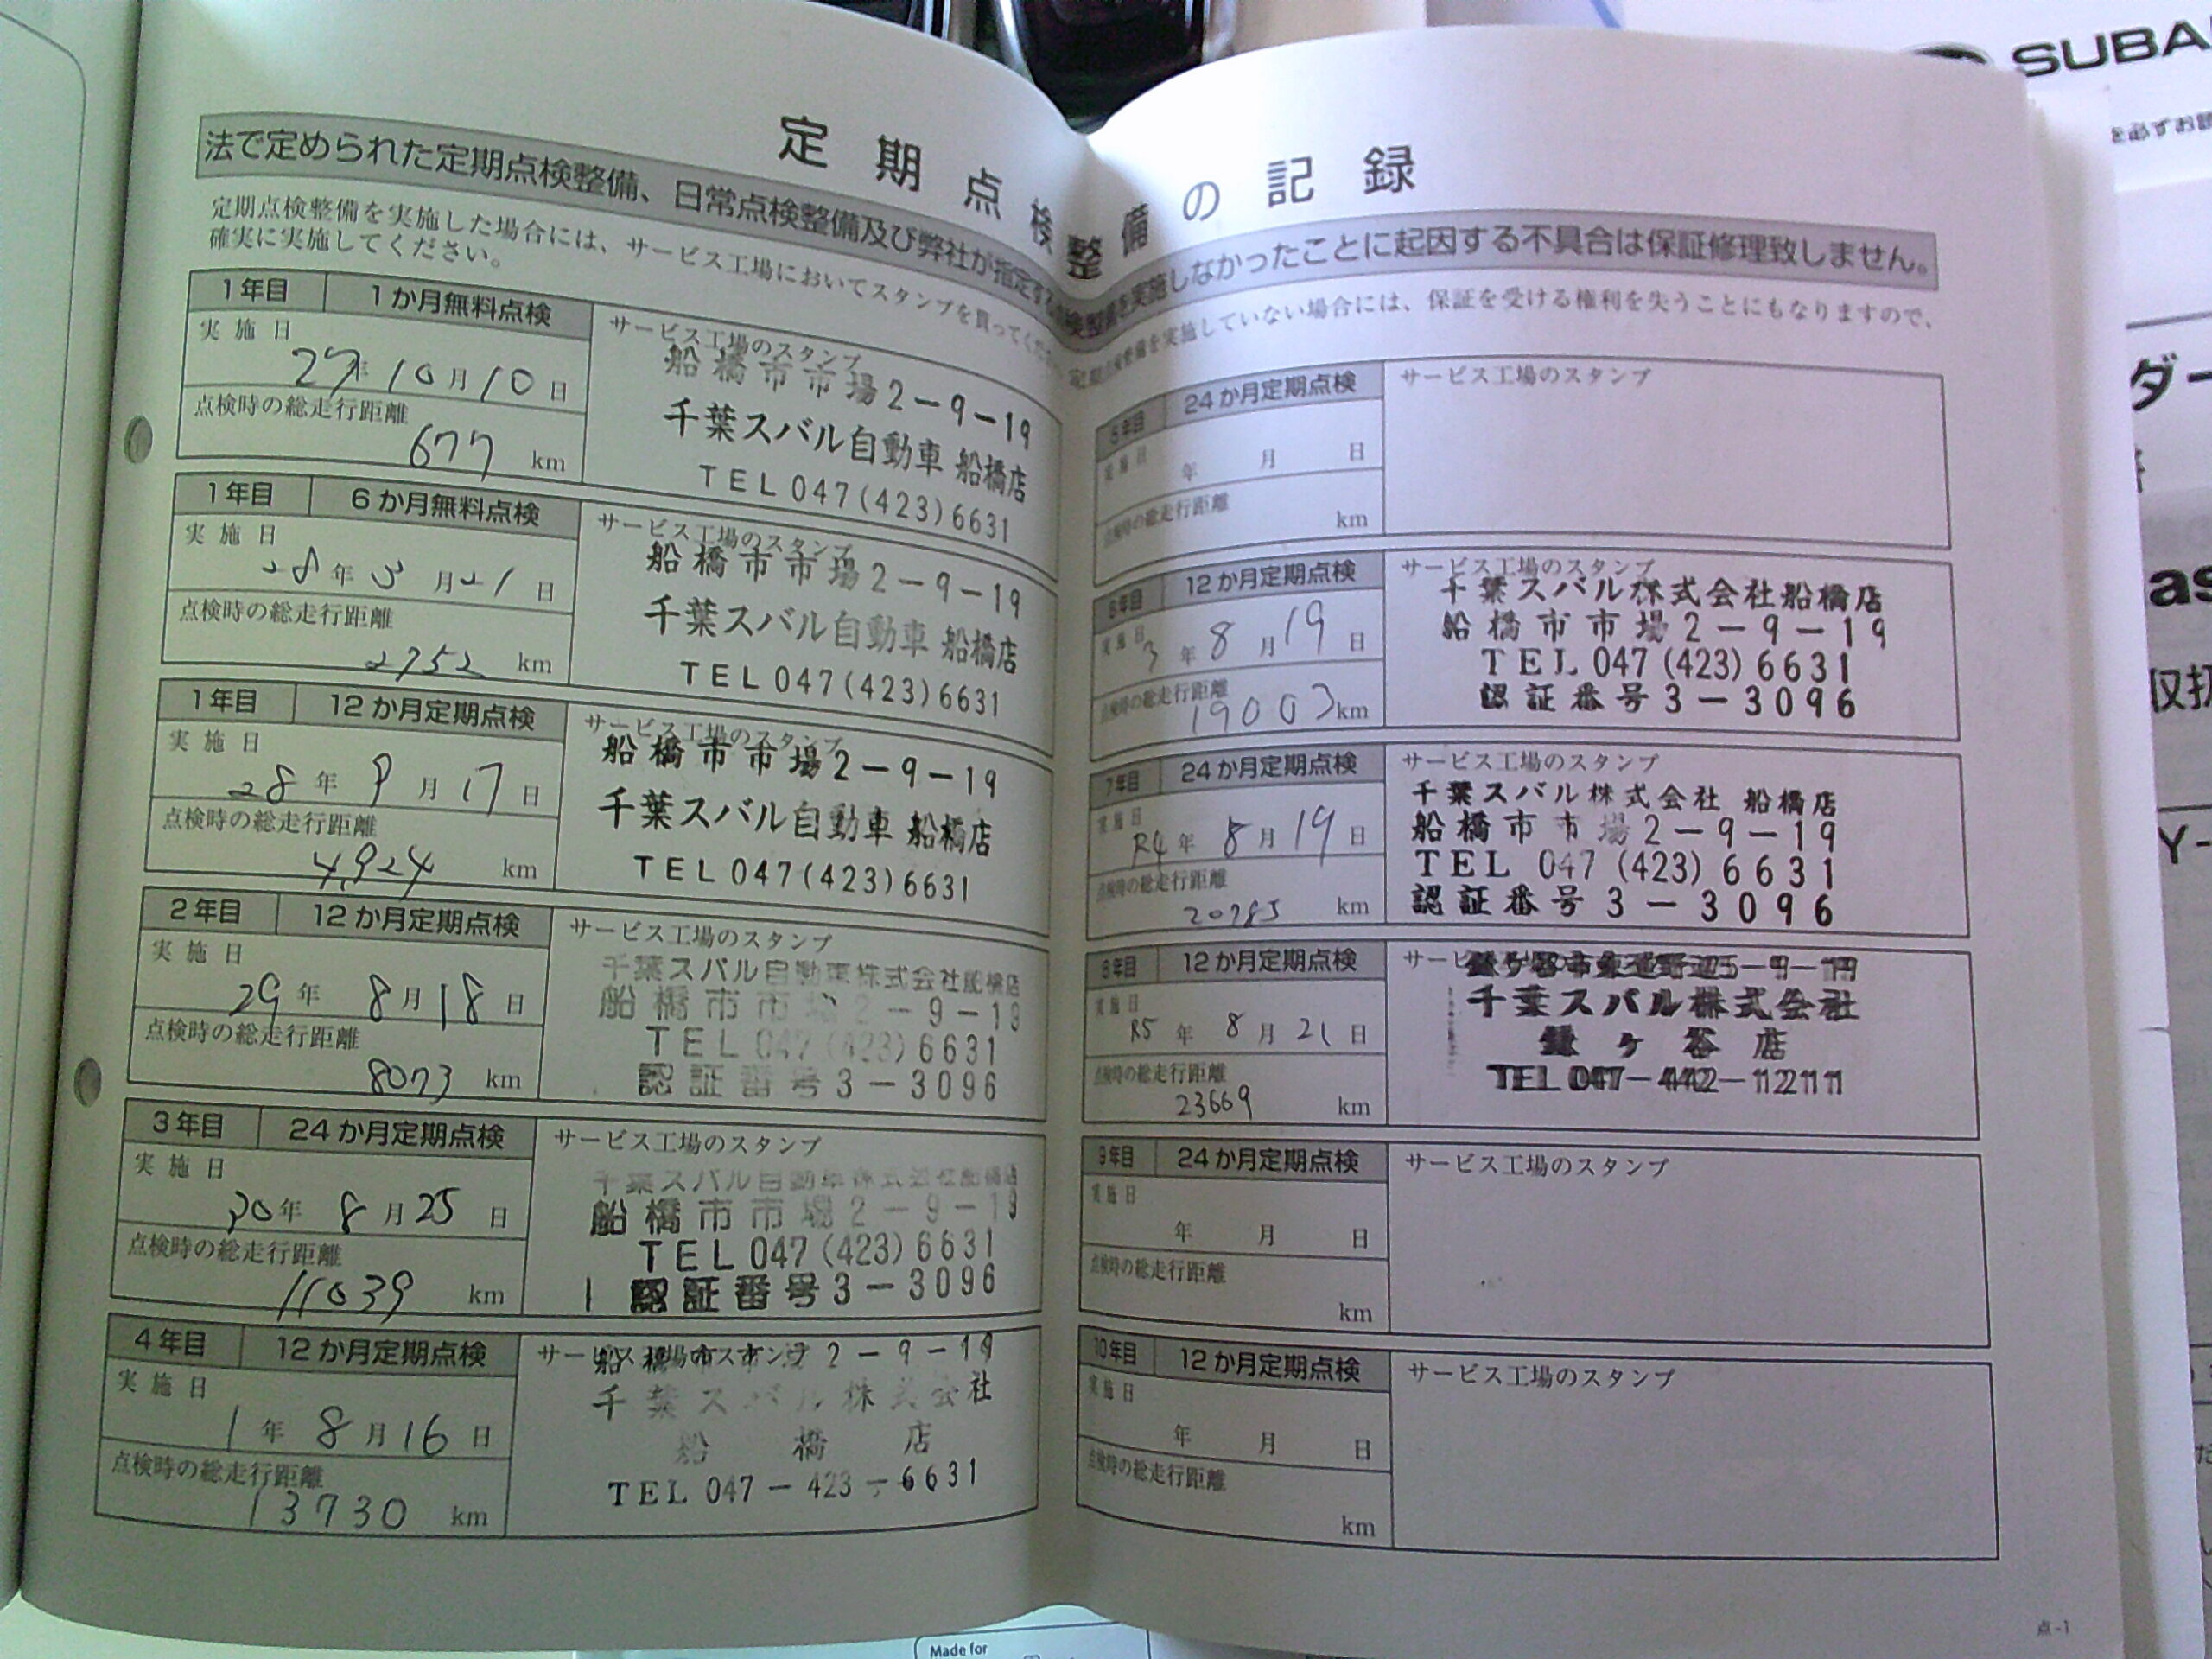 定期点検整備の記録
法で定められた定期点検整備、日常点検整備及び弊社が指定する点検整備を実施しなかったことに起因する不具合は保証修理致しません。
定期点検整備を実施した場合には、サービス工場においてスタンプを貰ってください。定期点検整備を実施していない場合には、保証を受ける権利を失うことにもなりますので、
確実に実施してください。
1年目 1か月無料点検
実施日
27年10月10日
点検時の総走行距離
677 km
サービス工場のスタンプ
船橋市市場2-9-19
千葉スバル自動車 船橋店
TEL047(423)6631
1年目 6か月無料点検
実施日
28年3月21日
点検時の総走行距離
2752 km
サービス工場のスタンプ
船橋市市場2-9-19
千葉スバル自動車 船橋店
TEL047(423)6631
1年目 12か月定期点検
実施日
28年9月17日
点検時の総走行距離
4,924 km
サービス工場のスタンプ
船橋市市場2-9-19
千葉スバル自動車 船橋店
TEL047(423)6631
2年目 12か月定期点検
実施日
29年8月18日
点検時の総走行距離
8073 km
サービス工場のスタンプ
千葉スバル自動車株式会社船橋店
船橋市市場2-9-19
TEL047(423)6631
認証番号3-3096
3年目 24か月定期点検
実施日
30年8月25日
点検時の総走行距離
11039 km
サービス工場のスタンプ
千葉スバル自動車株式会社船橋店
船橋市市場2-9-19
TEL047(423)6631
認証番号3-3096
4年目 12か月定期点検
実施日
1年8月16日
点検時の総走行距離
13730 km
サービス工場のスタンプ
船橋市市場2-9-19
千葉スバル株式会社
船橋店
TEL 047-423-6631
5年目 24か月定期点検
実施日
年 月 日
点検時の総走行距離
km
サービス工場のスタンプ
6年目 12か月定期点検
実施日
3年8月19日
点検時の総走行距離
19003km
サービス工場のスタンプ
千葉スバル株式会社船橋店
船橋市市場2-9-19
TEL047(423)6631
認証番号3-3096
7年目 24か月定期点検
実施日
R4年8月19日
点検時の総走行距離
km
サービス工場のスタンプ
千葉スバル株式会社 船橋店
船橋市市場2-9-19
TEL 047(423)6631
認証番号3-3096
8年目 12か月定期点検
実施日
R5年8月21日
点検時の総走行距離
23669 km
千葉スバル株式会社
鎌ヶ谷店
9年目 24か月定期点検
実施日
年 月 日
点検時の総走行距離
km
サービス工場のスタンプ
10年目 12か月定期点検
実施日
年 月 日
点検時の総走行距離
km
サービス工場のスタンプ
点-1
Made for
を必ずお読
ダー